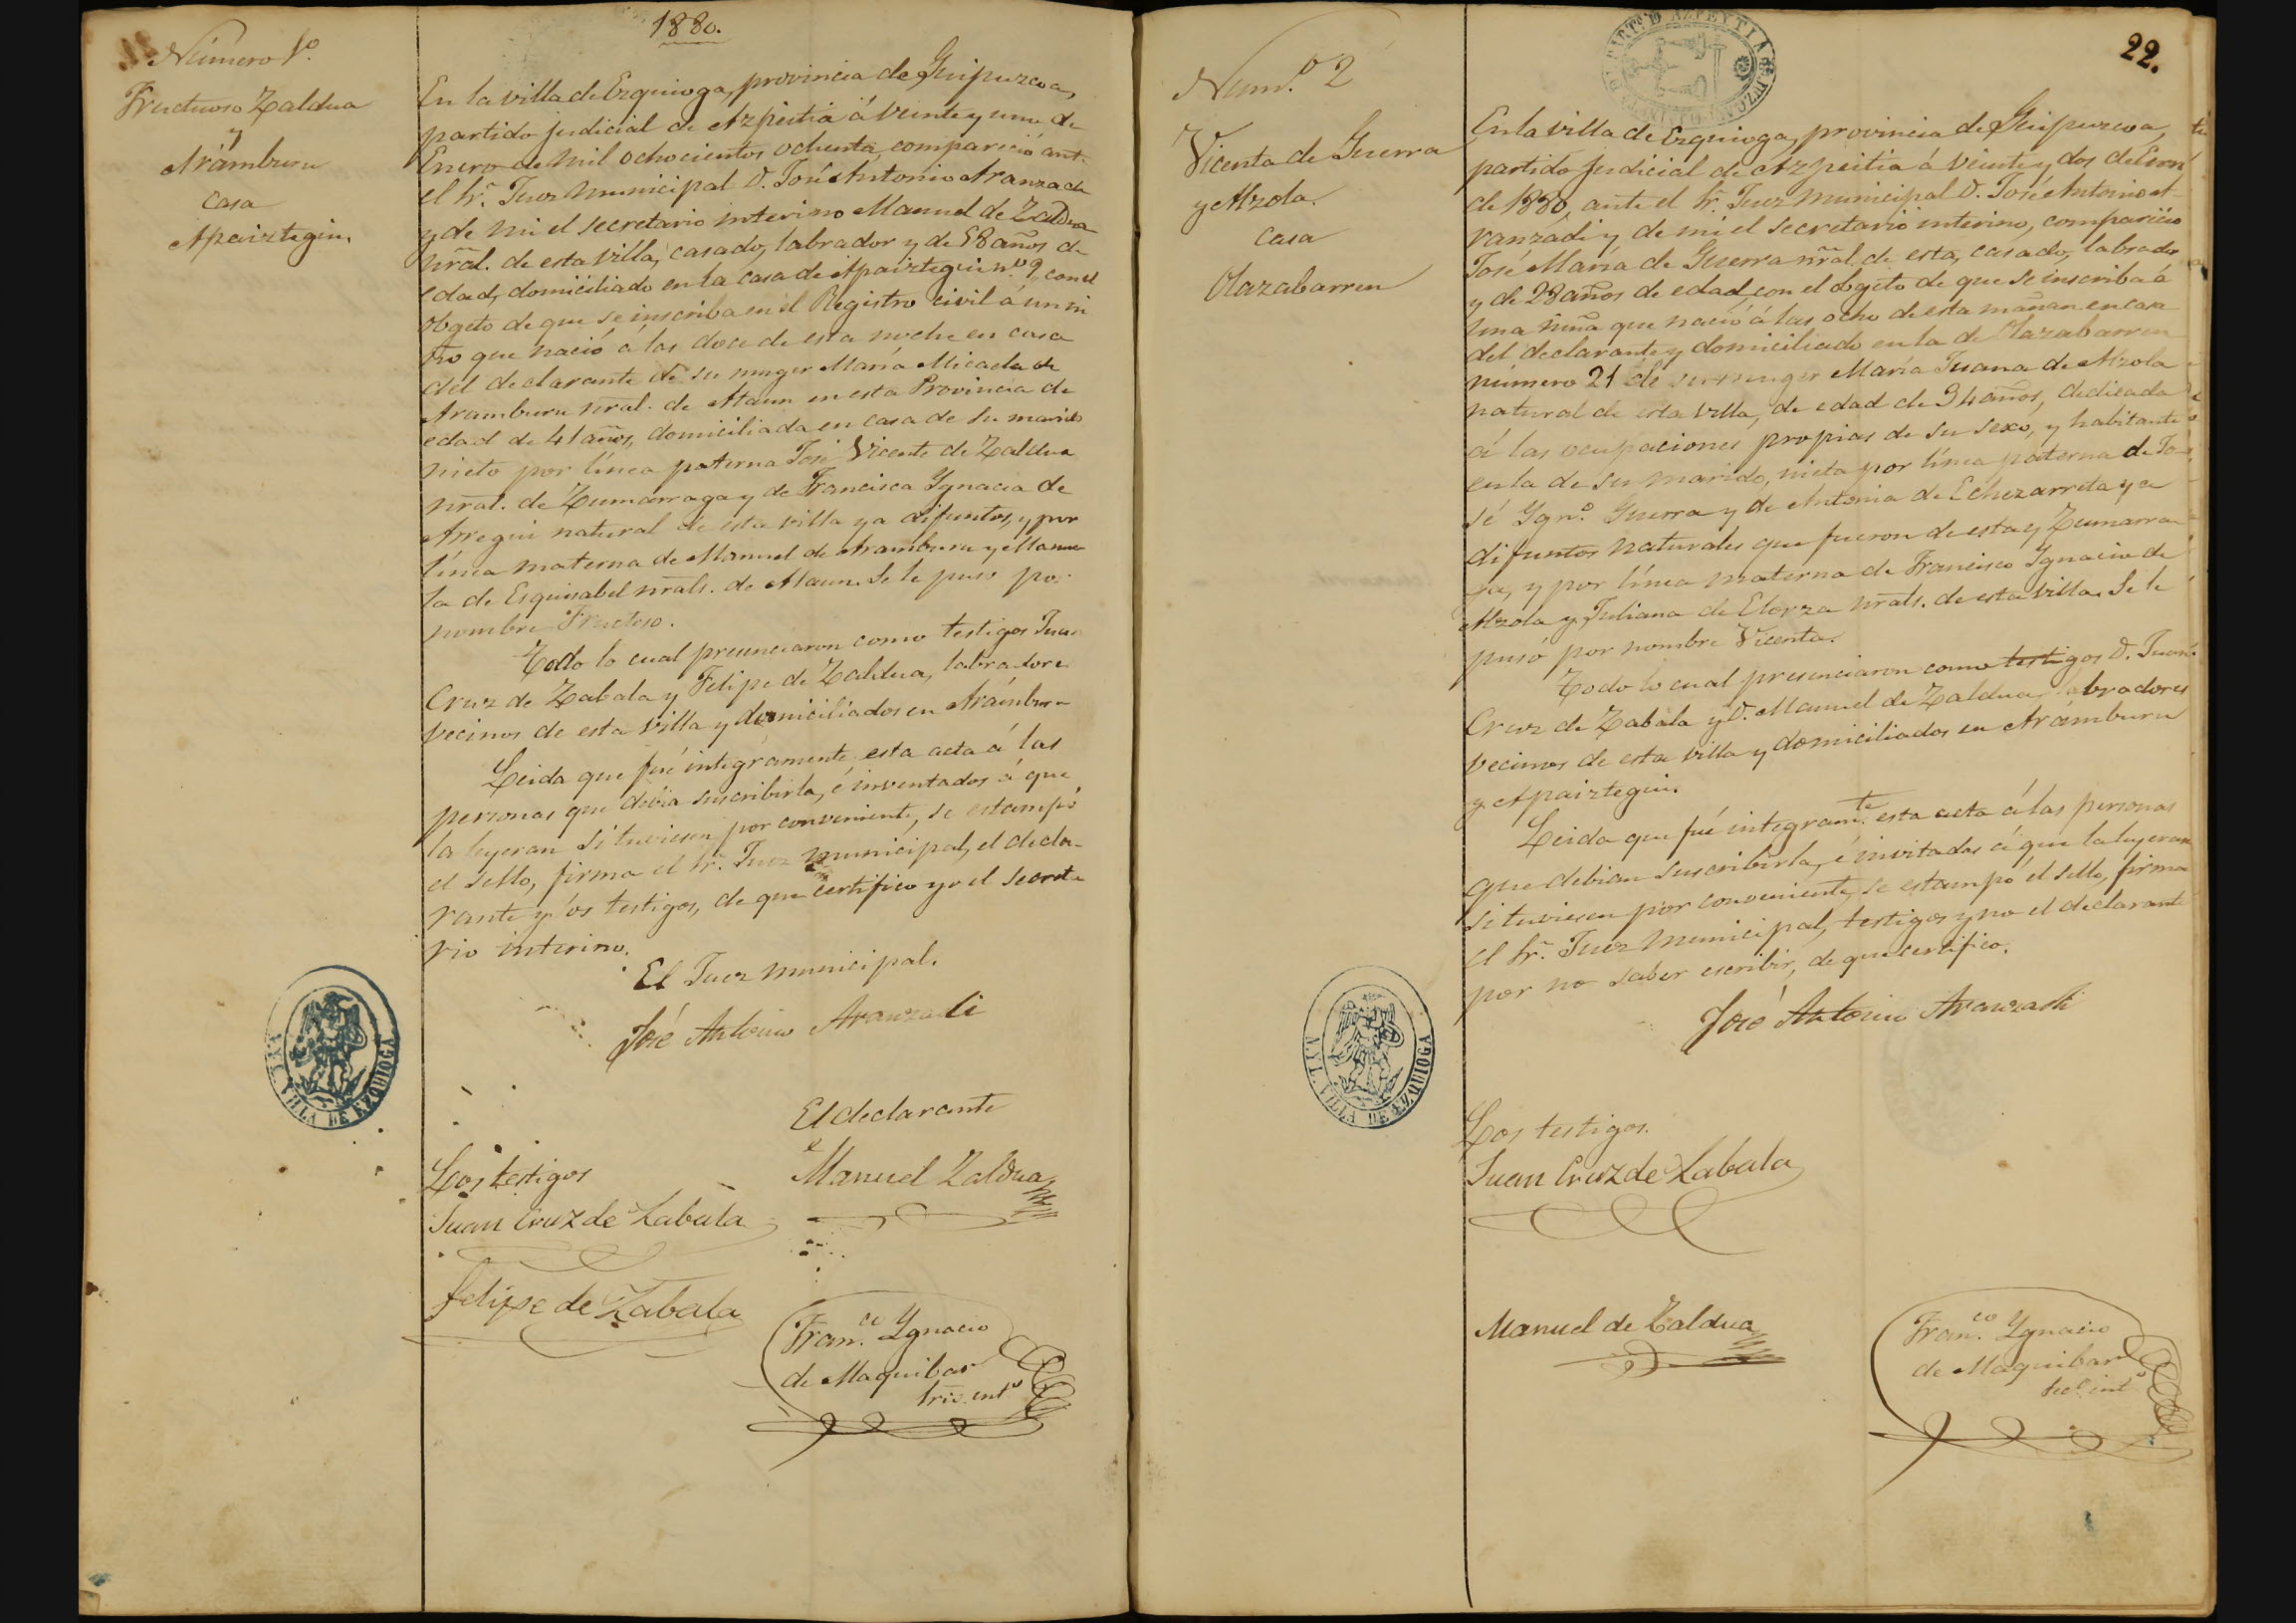 1880.
Número 1º
Fructuoso Zaldua
y
Aramburu
Casa
Apaiztegui.
En la villa de Ezquioga, provincia de Guipuzcoa,
partido judicial de Azpeitia á veinte y uno de
Enero de mil ochocientos ochenta, compareció ant
el Sr. Juez Municipal D. José Antonio Aranzadi
y de mi el secretario interino Manuel de Zaldua
nral. de esta villa, casado, labrador y de 58 años de
edad, domiciliado en la casa de Apaiztegui n.º 9, con el
objeto de que se inscriba en el Registro civil á un ni
ño que nació á las doce de esta noche en casa
del declarante de su muger María Micaela de
Aramburu nral. de Ataun en esta Provincia de
edad de 41 años, domiciliada en casa de su marido
nieto por línea paterna José Vicente de Zaldua
nral. de Zumarraga y de Francisca Ygnacia de
Arregui natural de esta villa ya difuntos, y por
línea materna de Manuel de Aramburu y Manue
la de Esquisabel nrals. de Ataun. Se le puso por
nombre Fructoso.
Todo lo cual presenciaron como testigos Juan
Cruz de Zabala y Felipe de Zaldua, labradore
vecinos de esta villa y domiciliados en Arámburu
Leida que fué integramente esta acta á las
personas que debia suscribirla, é inventados á que
la leyeran si tuviesen por conveniente, se estampó
el sello, firma el Sr. Juez municipal, el decla-
rante y los testigos, de que certifico yo el secreta
rio interino.
El Juez municipal.
José Antonio Aranzadi
El declarante
Manuel Zaldua
Los testigos
Juan Cruz de Zabala
Felipe de Zabala
Fran.co Ygnacio
de Maquibar
Srio. intº
N.Y.L. VILLA DE EZQUIOGA
22.
Num.º 2
Vicenta de Guerra
y Alzola.
Casa
Olazabarren
En la villa de Ezquioga, provincia de Guipuzcoa,
partido judicial de Azpeitia á veinte y dos de Ener
de 1880, ante el Sr. Juez Municipal D. José Antonio A
ranzadi y de mi el secretario interino, compareció
José María de Guerra nral. de esta, casado, labrador
y de 28 años de edad, con el objeto de que se inscriba á
una niña que nació á las ocho de esta mañan. en casa
del declarante y domiciliado en la de Olazabarren
número 21 de su muger María Juana de Alzola
natural de esta villa, de edad de 34 años, dedicada
á las ocupaciones propias de su sexo, y habitante
en la de su marido, nieta por línea paterna de Jo-
sé Ygn.º Guerra y de Antonia de Echezarreta ya
difuntos naturales que fueron de esta y Zumarra
ga, y por línea materna de Francisco Ygnacio de
Alzola y Juliana de Elorza nrals. de esta villa. Se le
pusó por nombre Vicenta.
Todo lo cual presenciaron como testigos D. Juan
Cruz de Zabala y D. Manuel de Zaldua, labradores
vecinos de esta villa y domiciliados en Arámburu
y Apaiztegui.
Leida que fué integram.te esta acta á las personas
que debian suscribirla, é invitadas á que la leyeran
si tuviesen por conveniente, se estampó el sello, firma
el Sr. Juez Municipal, testigos y no el declarante
por no saber escribir, de que certifico.
José Antonio Aranzadi
Los testigos.
Juan Cruz de Zabala
Manuel de Zaldua
Fran.co Ygnacio
de Maquibar
Sec.º int.º
N.Y.L. VILLA DE EZQUIOGA